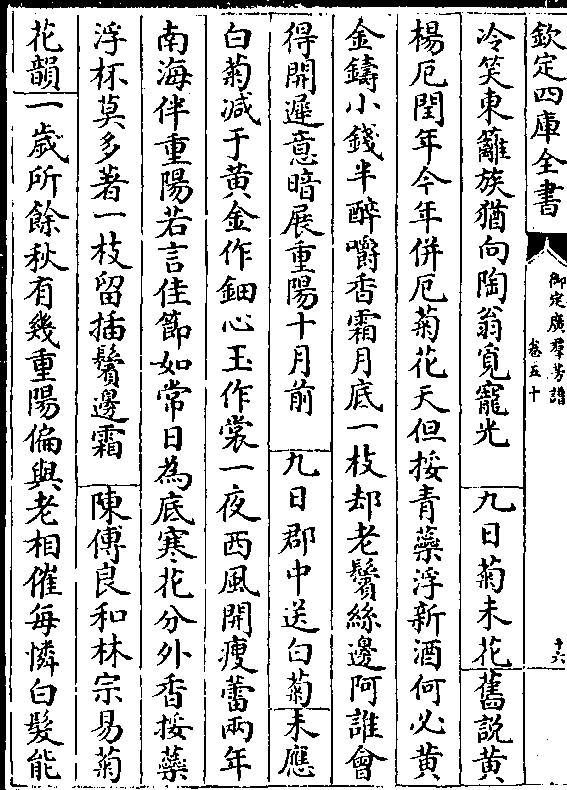 欽定四庫全書
御定廣羣芳譜
卷五十
十六
冷笑東籬族猶向陶翁覓寵光　九日菊未花舊說黃
楊厄閏年今年併厄菊花天但挼青蘂浮新酒何必黃
金鑄小錢半醉嚼香霜月底一枝却老鬢絲邊阿誰會
得開遲意暗展重陽十月前　九日郡中送白菊未應
白菊減于黃金作鈿心玉作裳一夜西風開瘦蕾兩年
南海伴重陽若言佳節如常日為底寒花分外香挼蘂
浮杯莫多著一枝留插鬢邊霜　陳傅良和林宗易菊
花韻一歲所餘秋有幾重陽偏與老相催每憐白髮能